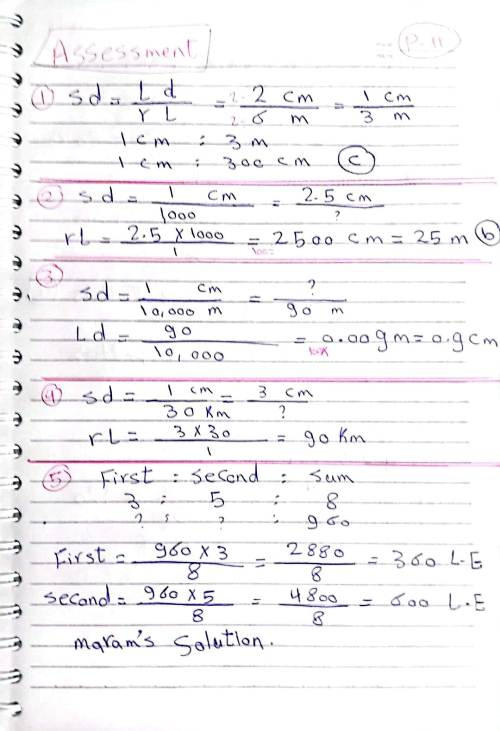 Assessment = P.11
① sd = Ld / rL = 2 cm / 6 m = 1 cm / 3 m
1 cm : 3 m
1 cm : 300 cm (c)
② sd = 1 cm / 1000 = 2.5 cm / ?
rL = 2.5 X 1000 / 1 = 2500 cm = 25 m (b)
③
sd = 1 cm / 10,000 m = ? / 90 m
Ld = 90 / 10,000 = 0.009 m = 0.9 cm
④ sd = 1 cm / 30 Km = 3 cm / ?
rL = 3 X 30 / 1 = 90 Km
⑤ First : second : sum
3 : 5 : 8
? : ? : 960
First = 960 X 3 / 8 = 2880 / 8 = 360 L.E
second = 960 X 5 / 8 = 4800 / 8 = 600 L.E
maram's Solution.